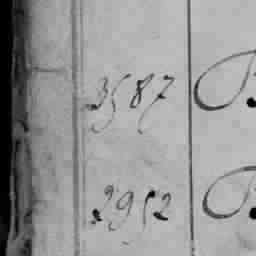 3587 B
2952 B